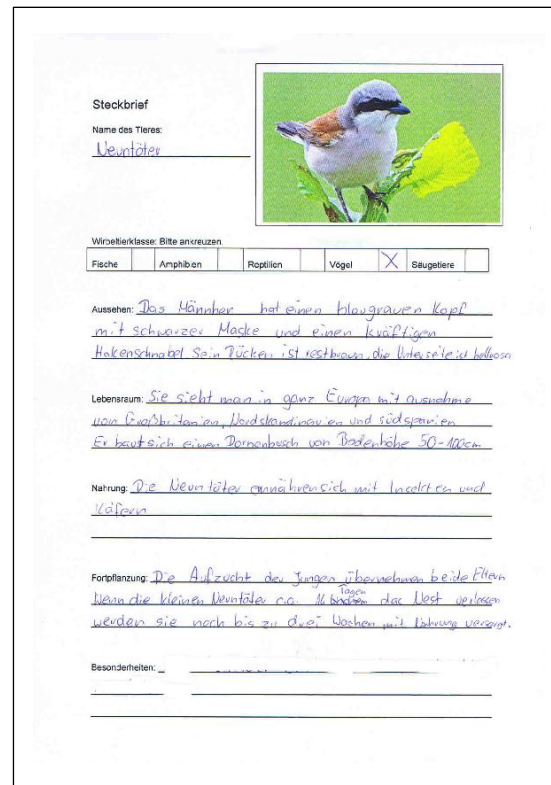 Steckbrief
Name des Tieres:
Neuntöter
Wirbeltierklasse: Bitte ankreuzen.
Fische Amphibien Reptilien Vögel X Säugetiere
Aussehen: Das Männher hat einen blaugrauen Kopf
mit schwarzer Maske und einen kräftigen
Hakenschnabel Sein Rücken ist rostbraun, die Unterseite ist hellrosa
Lebensraum: Sie sieht man in ganz Europa mit ausnahme
von Großbritanien, Nordskandinavien und südspanien
Er baut sich einen Dornenbusch von Bodenhöhe 50-100cm
Nahrung: Die Neuntöter ernähren sich mit Insekten und
Käfern
Fortpflanzung: Die Aufzucht der Jungen übernehmen beide Eltern
Wenn die kleinen Neuntöter c.a. 16 Tagen das Nest verlassen
werden sie noch bis zu drei Wochen mit Nahrung versorgt.
Besonderheiten: